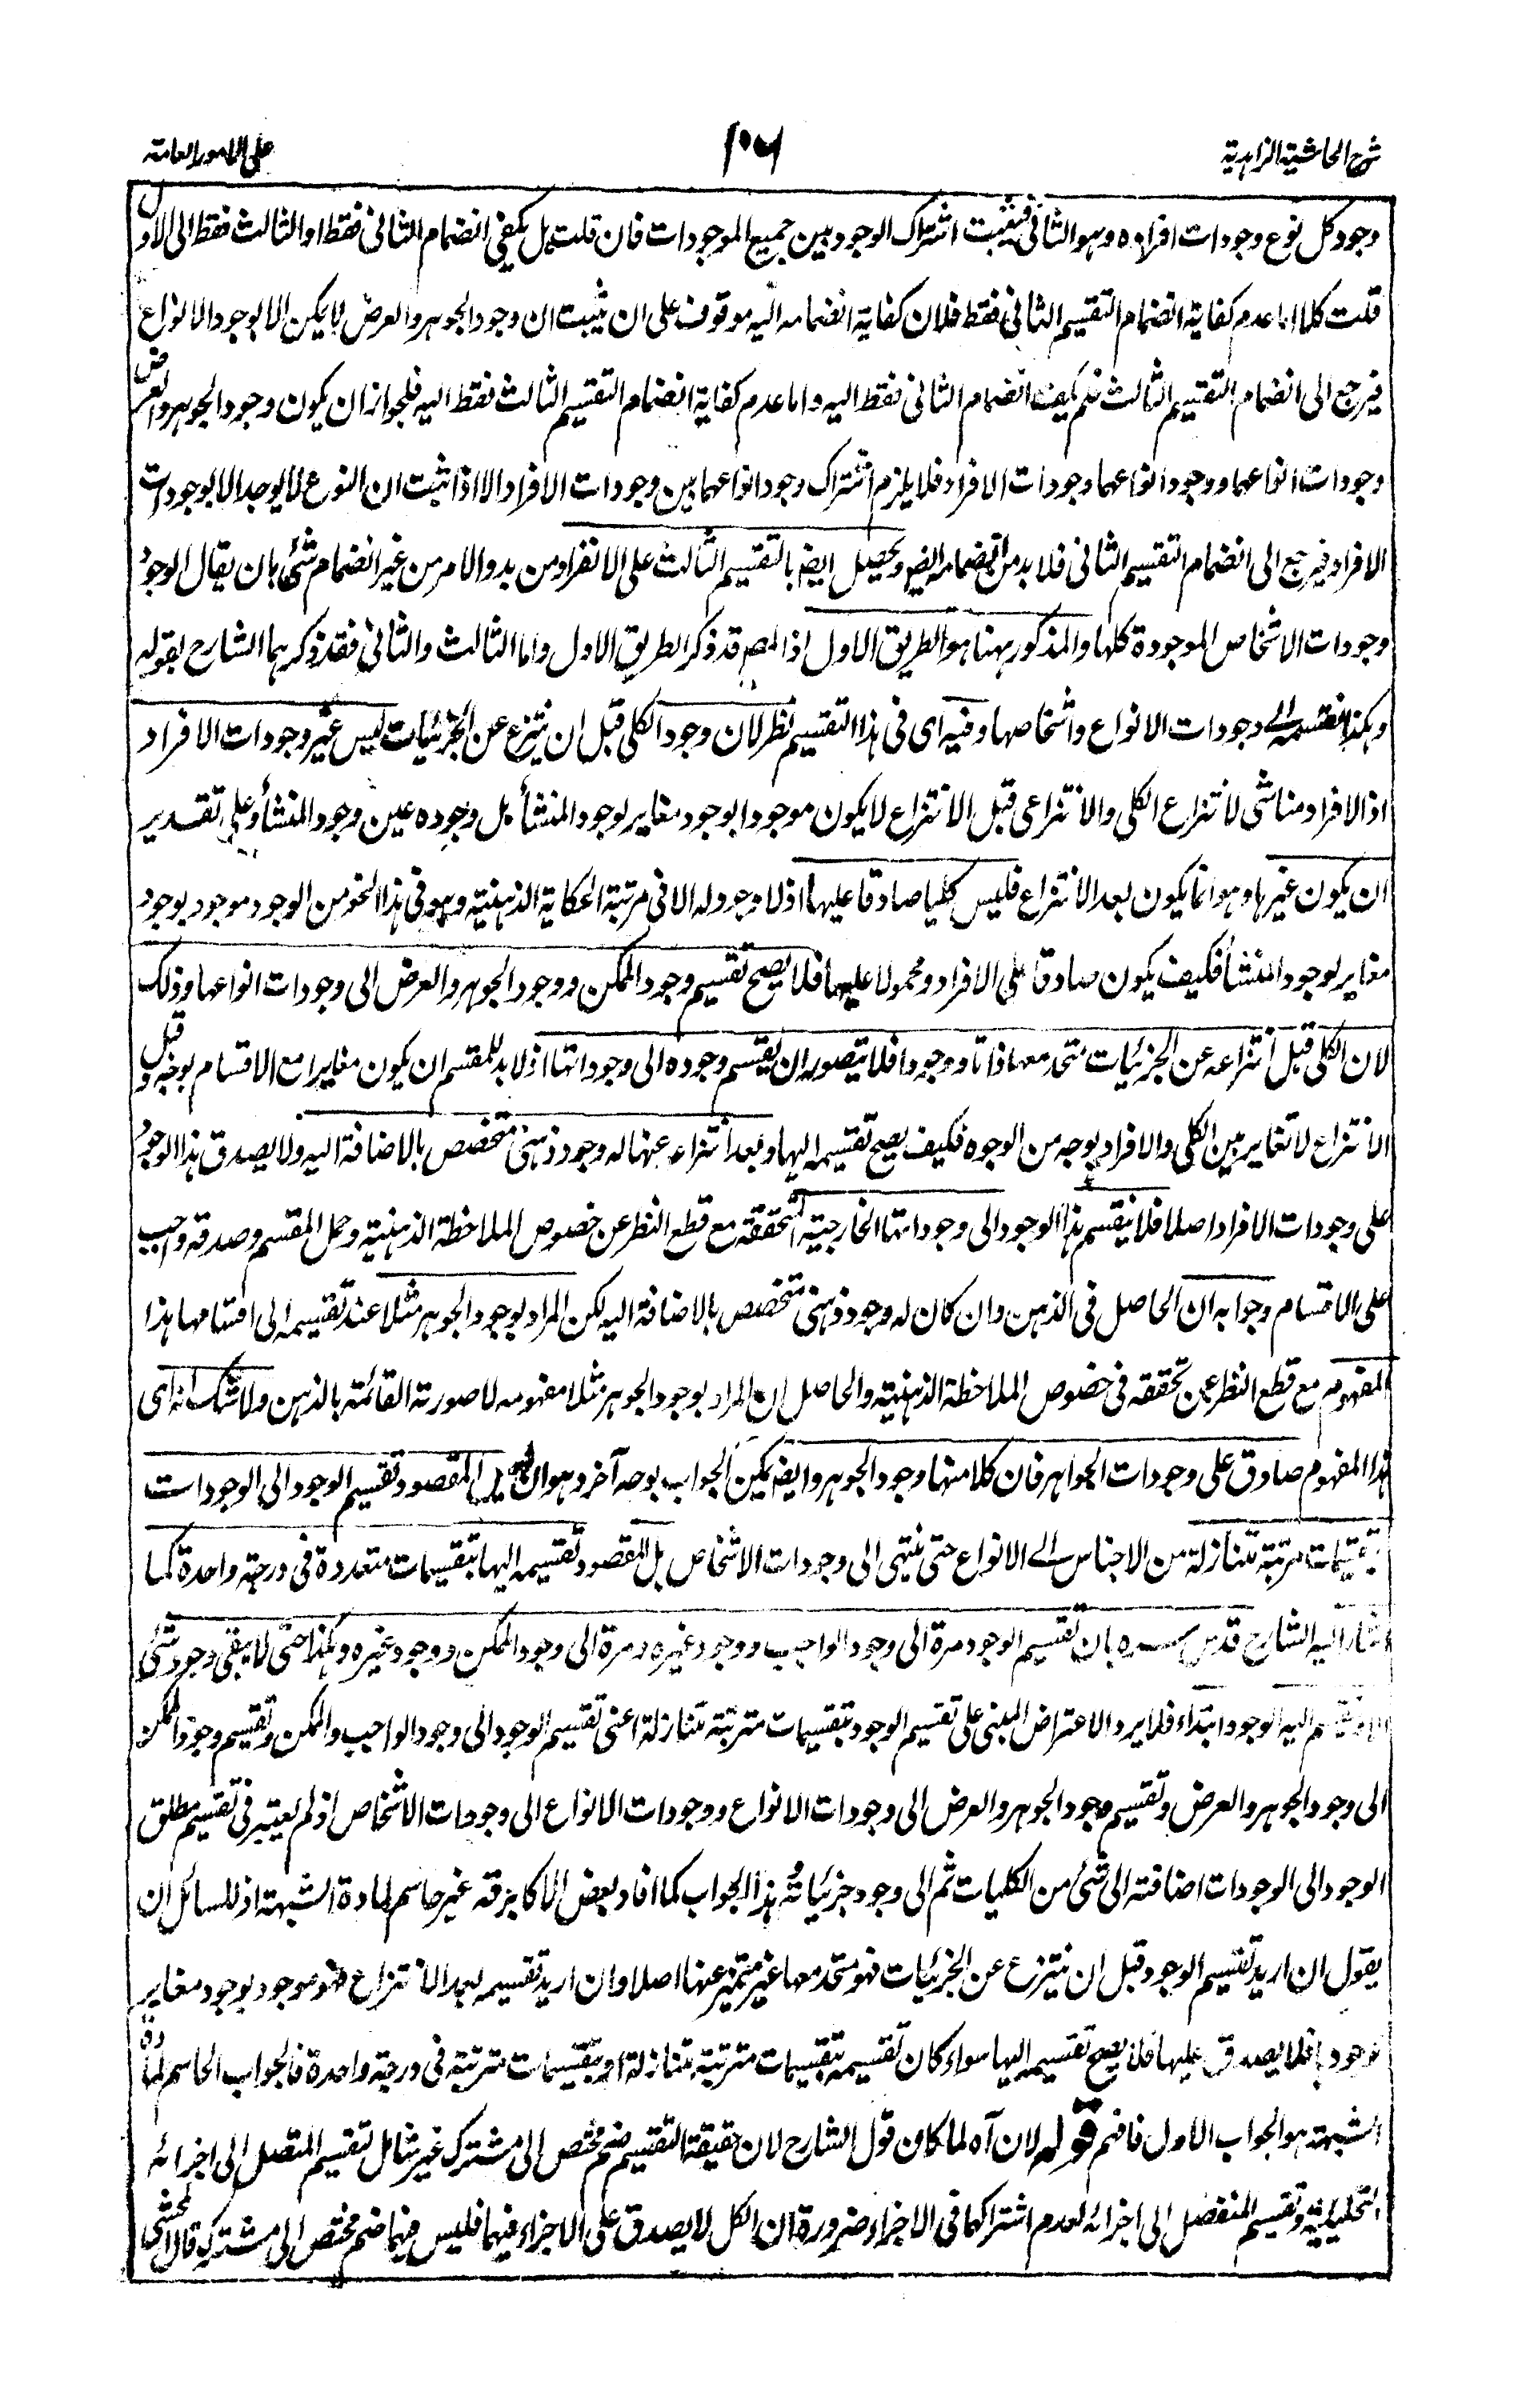 شرح الحاشية الزاهدية
١٠٦
على الامور العامة
وجود كل نوع وجودات افراده وهو الثانى فيثبت اشتراك الوجود بين جميع الموجودات فان قلت هل يكفى انضمام الثانى فقط او الثالث فقط الى الاول
قلت كلا اما عدم كفاية انضمام التقسيم الثانى فقط فلان كفاية انضمامه اليه موقوف على ان يثبت ان وجود الجوهر والعرض لا يكن الا بوجود الانواع
فيرجع الى انضمام التقسيم الثالث فلم يكف انضمام الثانى فقط اليه واما عدم كفاية انضمام التقسيم الثالث فقط اليه فلجواز ان يكون وجود الجوهر والعرض
وجودات انواعهما ووجود انواعهما وجودات الافراد فلا يلزم اشتراك وجود انواعهما بين وجودات الافراد الا اذا ثبت ان النوع لا يوجد الا بوجودات
الافراد فيرجع الى انضمام التقسيم الثانى فلا بد من انضمامه ايض ويحصل ايض بالتقسيم الثالث على الانفراد من بدو الامر من غير انضمام شئ بان يقال الوجود
وجودات الاشخاص الموجودة كلها والمذكور ههنا هو الطريق الاول اذ المصـ قد ذكر الطريق الاول واما الثالث والثانى فقد ذكرهما الشارح بقوله
وهكذا نقسمه الى وجودات الانواع واشخاصها وفيه اى فى هذا التقسيم نظر لان وجود الكلى قبل ان ينتزع عن الجزئيات ليس غير وجودات الافراد
اذ الافراد مناشى لانتزاع الكلى والانتزاعى قبل الانتزاع لا يكون موجودا بوجود مغاير لوجود المنشأ بل وجوده عين وجود المنشأ وعلى تقدير
ان يكون غيرها وهو انما يكون بعد الانتزاع فليس كليا صادقا عليها اذ لا وجود له الا فى مرتبة الحكاية الذهنية وهو فى هذا النحو من الوجود موجود بوجود
مغاير لوجود المنشأ فكيف يكون صادقا على الافراد ومحمولا عليها فلا يصح تقسيم وجود الممكن ووجود الجوهر والعرض الى وجودات انواعها وذلك
لان الكلى قبل انتزاعه عن الجزئيات متحد معها ذاتا ووجودا فلا يتصور ان يقسم وجوده الى وجوداتها اذ لا بد للمقسم ان يكون مغايرا مع الاقسام بوجه وقبل
الانتزاع لا تغاير بين الكلى والافراد بوجه من الوجوه فكيف يصح تقسيمه اليها وبعد انتزاعه عنها له وجود ذهنى متخصص بالاضافة اليه ولا يصدق هذا الوجود
على وجودات الافراد اصلا فلا ينقسم هذا الوجود الى وجوداتها الخارجية المتحققة مع قطع النظر عن خصوص الملاحظة الذهنية وحمل المقسم وصدقه واجب
على الاقسام وجوابه ان الحاصل فى الذهن وان كان له وجود ذهنى متخصص بالاضافة اليه لكن المراد بوجود الجوهر مثلا عند تقسيمه الى اقسامها هذا
المفهوم مع قطع النظر عن تحققه فى خصوص الملاحظة الذهنية والحاصل ان المراد بوجود الجوهر مثلا مفهومه لا صورته القائمة بالذهن ولا شك انه اى
هذا المفهوم صادق على وجودات الجواهر فان كلا منها وجود الجوهر وايض يمكن الجواب بوجه آخر وهو ان ليس المقصود تقسيم الوجود الى الوجودات
بتقسيمات مترتبة متنازلة من الاجناس الى الانواع حتى ينتهى الى وجودات الاشخاص بل المقصود تقسيمه اليها بتقسيمات متعددة فى درجة واحدة كما
اشار اليه الشارح قدس سره بان تقسيم الوجود مرة الى وجود الواجب ووجود غيره ومرة الى وجود الممكن ووجود غيره وهكذا حتى لا يبقى وجود شئ
الا وينقسم اليه الوجود ابتداء فلا يرد الاعتراض المبنى على تقسيم الوجود بتقسيمات مترتبة متنازلة اعنى تقسيم الوجود الى وجود الواجب والممكن وتقسيم وجود الممكن
الى وجود الجوهر والعرض وتقسيم وجود الجوهر والعرض الى وجودات الانواع ووجودات الانواع الى وجودات الاشخاص اذ لم يعتبر فى تقسيم مطلق
الوجود الى الوجودات اضافته الى شئ من الكليات ثم الى وجود جزئياته وهذا الجواب كما افاد بعض الاكابر قه غير حاسم لمادة الشبهة اذ للسائل ان
يقول ان اريد تقسيم الوجود قبل ان ينتزع عن الجزئيات فهو متحد معها غير متميز عنها اصلا وان اريد تقسيمه بعد الانتزاع فهو موجود بوجود مغاير
لوجودها فلا يصدق عليها فلا يصح تقسيمه اليها سواء كان تقسيمه بتقسيمات مترتبة متنازلة او بتقسيمات مترتبة فى درجة واحدة فالجواب الحاسم لمادة
الشبهة هو الجواب الاول فافهم قوله لان آه لما كان قول الشارح لان حقيقة التقسيم ضم مختص الى مشترك غير شامل لتقسيم المتصل الى اجزائه
التحليلية وتقسيم المنفصل الى اجزائه لعدم اشتراكهما فى الاجزاء ضرورة ان الكل لا يصدق على الاجزاء فيهما فليس فيهما ضم مختص الى مشترك قال المحشى